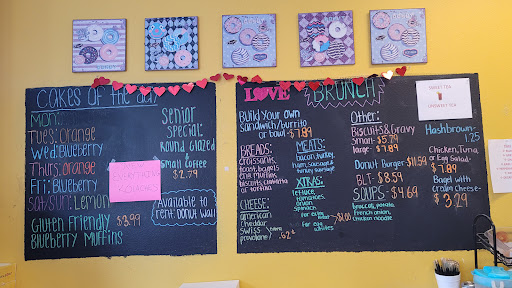 Cakes of the day
Mon:
Tues: Orange
Wed: Blueberry
Thurs: Orange
Fri: Blueberry
Sat/Sun: Lemon
Gluten Friendly $3.99
Blueberry Muffins
Senior
Special:
Round Glazed
Small Coffee
$2.79
Available to
rent: Donut Wall
LOVE BRUNCH
Build your own
Sandwich/burrito
or bowl $7.89
BREADS:
croissants,
toast, bagels
MEATS:
bacon, turkey,
ham, sausage,
turkey sausage
XTRAS:
lettuce,
tomatoes,
onion
spinach
for egg
whites
CHEESE:
american
cheddar
swiss
provolone
Other:
Biscuits & Gravy
Small $5.79
large $7.89
Donut Burger $11.59
BLT- $8.59
SOUPS- $4.69
broccoli, potato,
French onion,
chicken noodle
SWEET TEA
UNSWEET TEA
Hashbrown-
1.25
Chicken, Tuna,
or Egg Salad-
$7.89
Bagel with
Cream Cheese-
$3.29